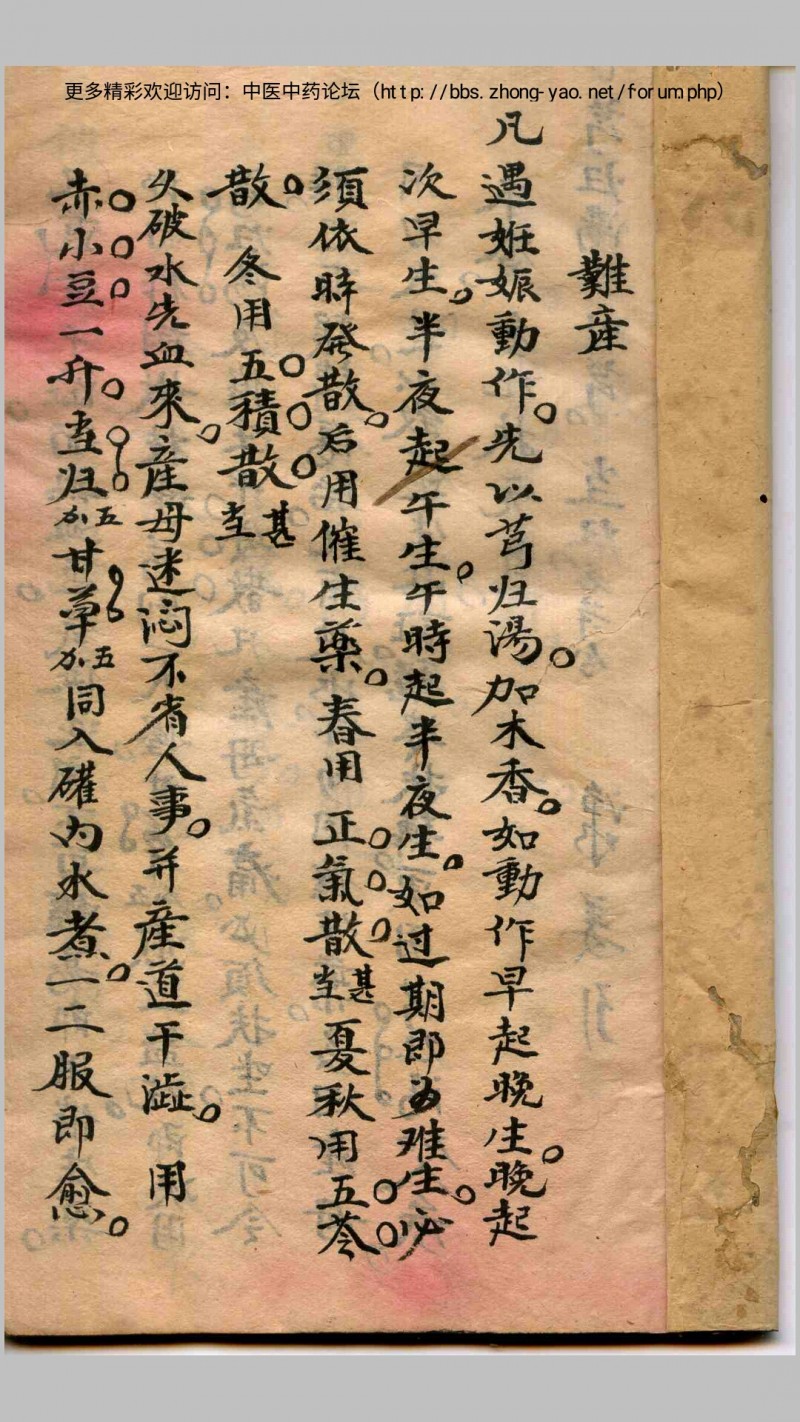 更多精彩欢迎访问：中医中药论坛（http://bbs.zhong-yao.net/forumphp）
難產
凡遇妊娠動作。先以芎归湯。加木香。如動作早起晚生。晚起
次早生。半夜起午生。午時起半夜生。如过期即为难生。必
須依時發散。后用催生藥。春用正氣散甚玅夏秋用五苓
散。冬用五積散甚玅
久破水先血來。産母迷闷不省人事。并産道干澁。用
赤小豆一升。查归五分甘草五分同入礶內水煮。一二服即愈。